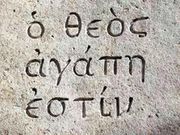 ὁ θεὸς
ἀγάπη
ἐστίν..